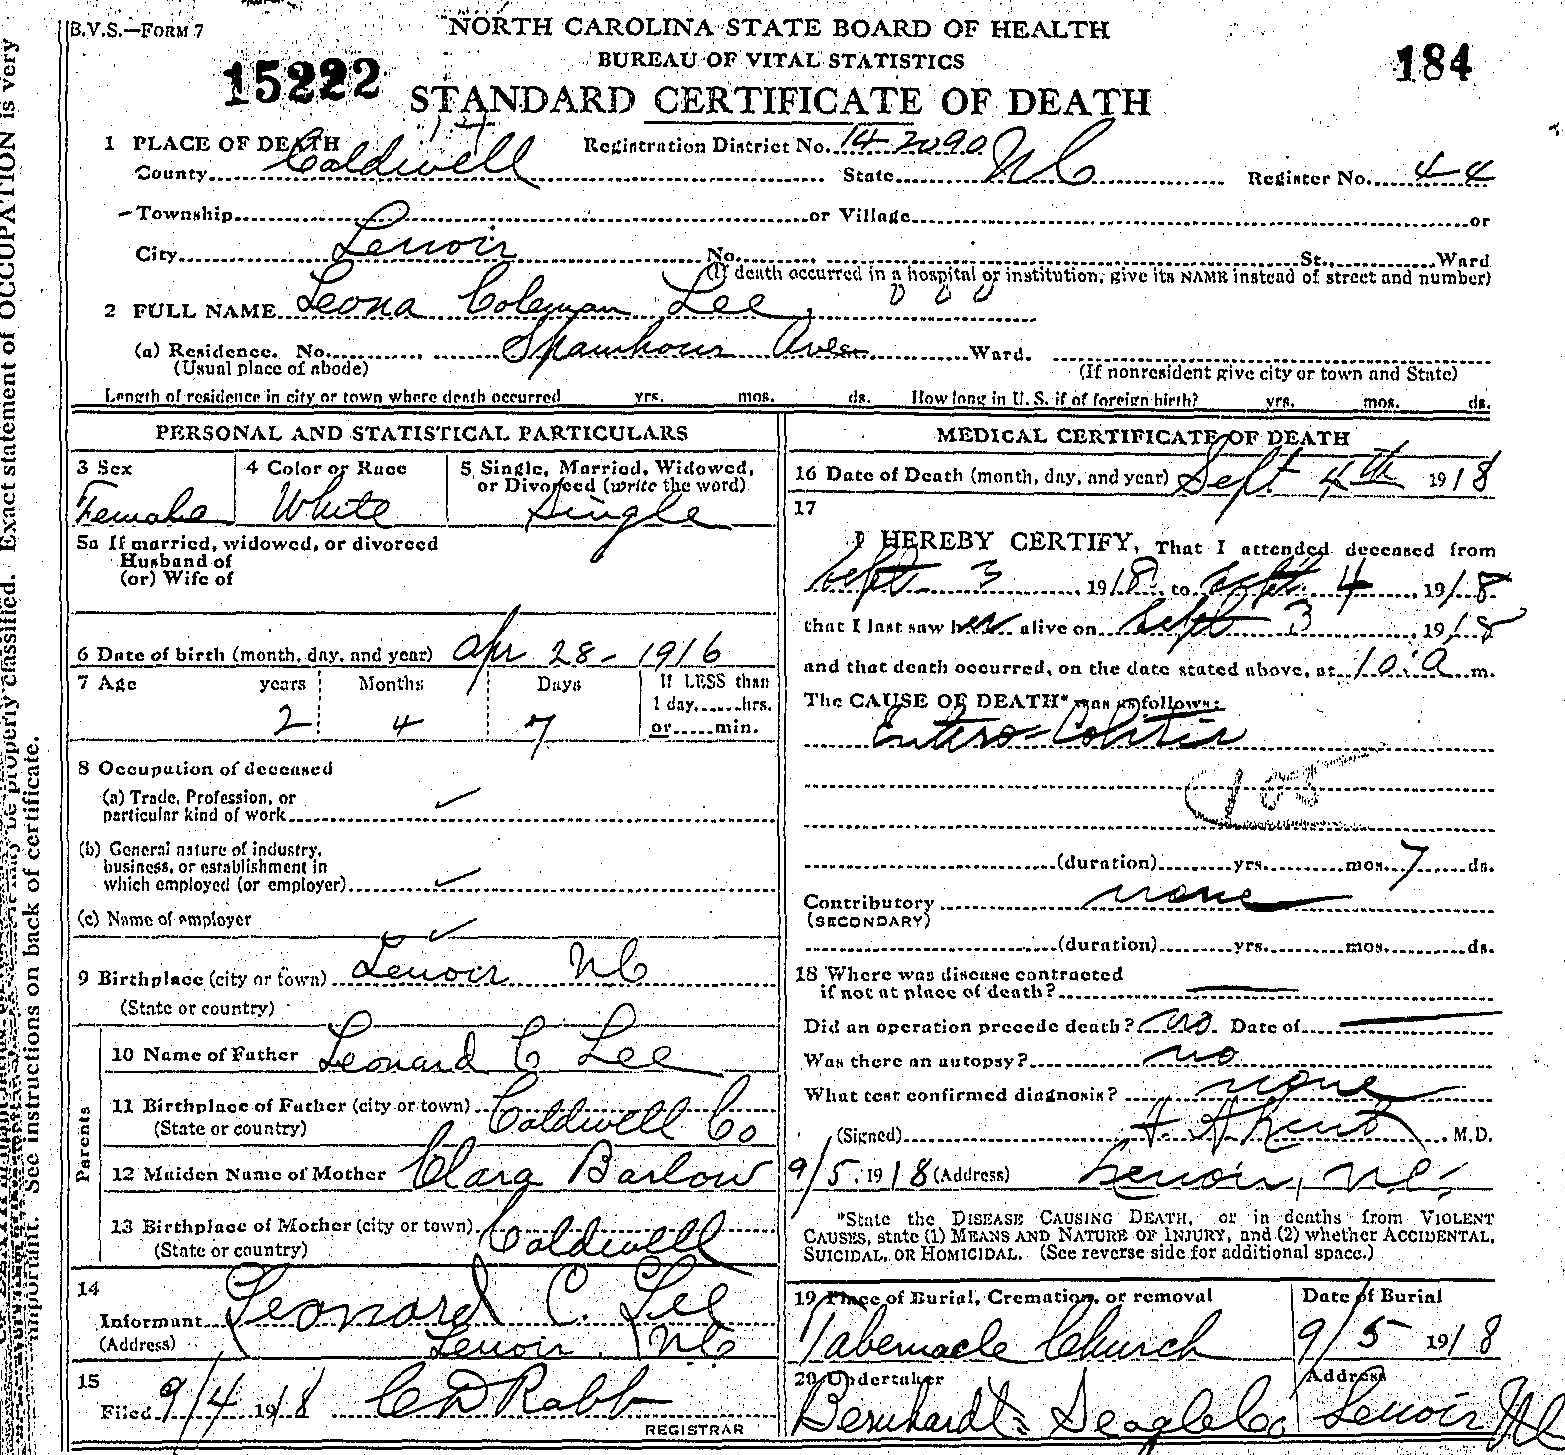 B.V.S.—FORM 7
NORTH CAROLINA STATE BOARD OF HEALTH
BUREAU OF VITAL STATISTICS
15222
184
STANDARD CERTIFICATE OF DEATH
1 PLACE OF DEATH Registration District No. 14-2090
County Caldwell State NC Register No. 44
Township or Village or
City Lenoir No. St., Ward
(If death occurred in a hospital or institution, give its NAME instead of street and number)
2 FULL NAME Leona Coleman Lee
(a) Residence. No. Spainhour Ave Ward.
(Usual place of abode) (If nonresident give city or town and State)
Length of residence in city or town where death occurred yrs. mos. ds. How long in U. S. if of foreign birth? yrs. mos. ds.
PERSONAL AND STATISTICAL PARTICULARS
3 Sex 4 Color or Race 5 Single, Married, Widowed,
or Divorced (write the word)
Female White Single
5a If married, widowed, or divorced
Husband of
(or) Wife of
6 Date of birth (month, day, and year) Apr 28- 1916
7 Age years Months Days If LESS than
1 day, hrs.
2 4 7 or min.
8 Occupation of deceased
(a) Trade, Profession, or
particular kind of work
(b) General nature of industry,
business, or establishment in
which employed (or employer)
(c) Name of employer
9 Birthplace (city or town) Lenoir NC
(State or country)
Parents
10 Name of Father Leonard C Lee
11 Birthplace of Father (city or town) Caldwell Co
(State or country)
12 Maiden Name of Mother Clara Barlow
13 Birthplace of Mother (city or town) Caldwell
(State or country)
14
Informant Leonard C. Lee
(Address) Lenoir NC
15
Filed 9/4 1918 C D Rabb
REGISTRAR
MEDICAL CERTIFICATE OF DEATH
16 Date of Death (month, day, and year) Sept 4th 1918
17
I HEREBY CERTIFY, That I attended deceased from
Sept 3, 1918, to Sept. 4, 1918
that I last saw her alive on Sept 3, 1918
and that death occurred, on the date stated above, at 10:a m.
The CAUSE OF DEATH* was as follows:
Entero-Colitis
105
(duration) yrs. mos. 7 ds.
Contributory none
(SECONDARY)
(duration) yrs. mos. ds.
18 Where was disease contracted
if not at place of death?
Did an operation precede death? no. Date of
Was there an autopsy? no
What test confirmed diagnosis? none
(Signed) A. A. Kent M.D.
9/5, 1918 (Address) Lenoir, N.C.
*State the DISEASE CAUSING DEATH, or in deaths from VIOLENT
CAUSES, state (1) MEANS AND NATURE OF INJURY, and (2) whether ACCIDENTAL,
SUICIDAL, OR HOMICIDAL. (See reverse side for additional space.)
19 Place of Burial, Cremation, or removal Date of Burial
Tabernacle Church 9/5 1918
20 Undertaker Address
Bernhardt-Seagle Co Lenoir NC
Exact statement of OCCUPATION is very
be properly classified.
important. See instructions on back of certificate.